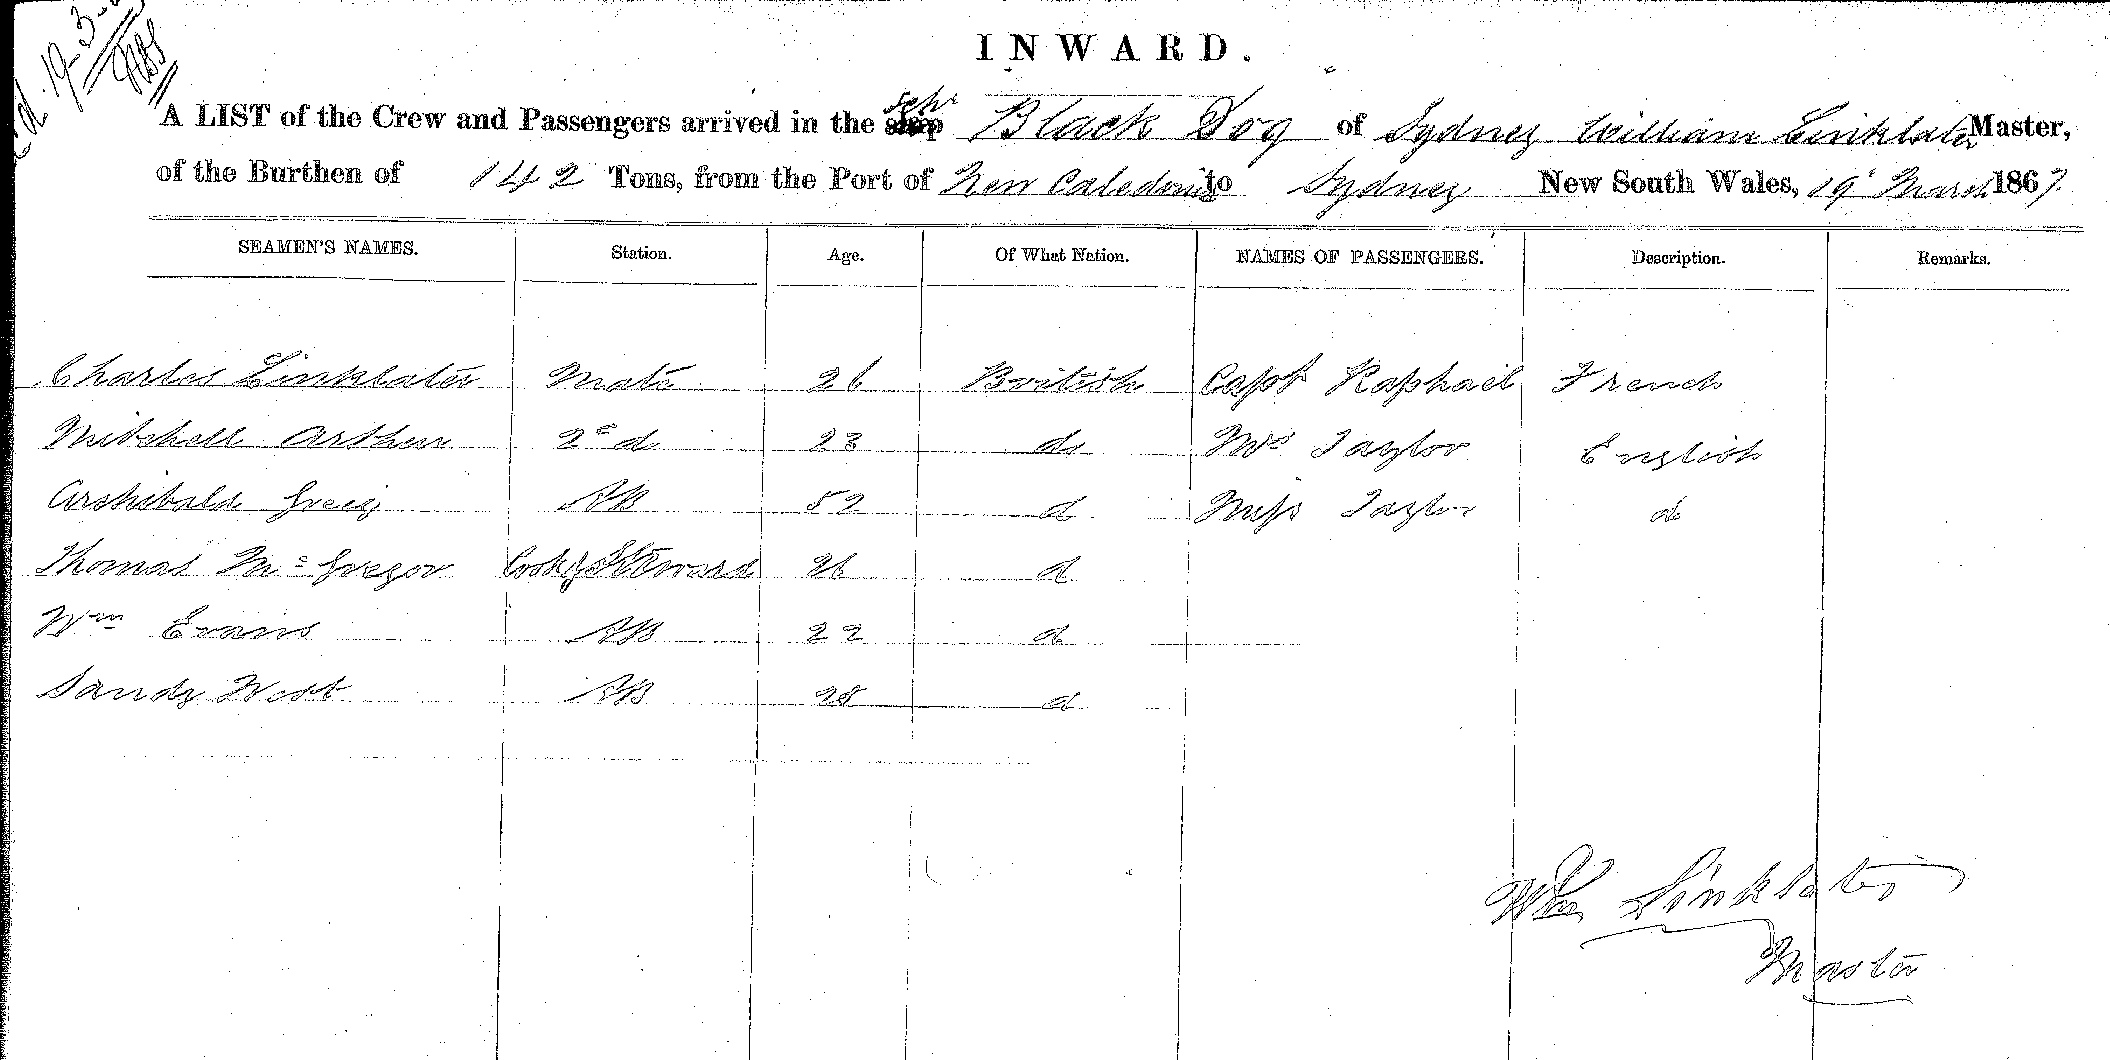 19-3-
INWARD.
A LIST of the Crew and Passengers arrived in the schr Black Dog of Sydney William Linklater Master,
of the Burthen of 142 Tons, from the Port of New Caledonia to Sydney New South Wales, 19 March 1867
SEAMEN'S NAMES. Station. Age. Of What Nation. NAMES OF PASSENGERS. Description. Remarks.
Charles Linklater Mate 26 British Capt Raphael French
Mitchell Arthur 2nd 23 do Mrs Taylor English
Archibald Greig AB 52 d Miss Taylor d
Thomas Mc Gregor Cook & Steward 26 d
Wm Evans AB 22 d
Sandy West AB 28 d
Wm Linklater
Master